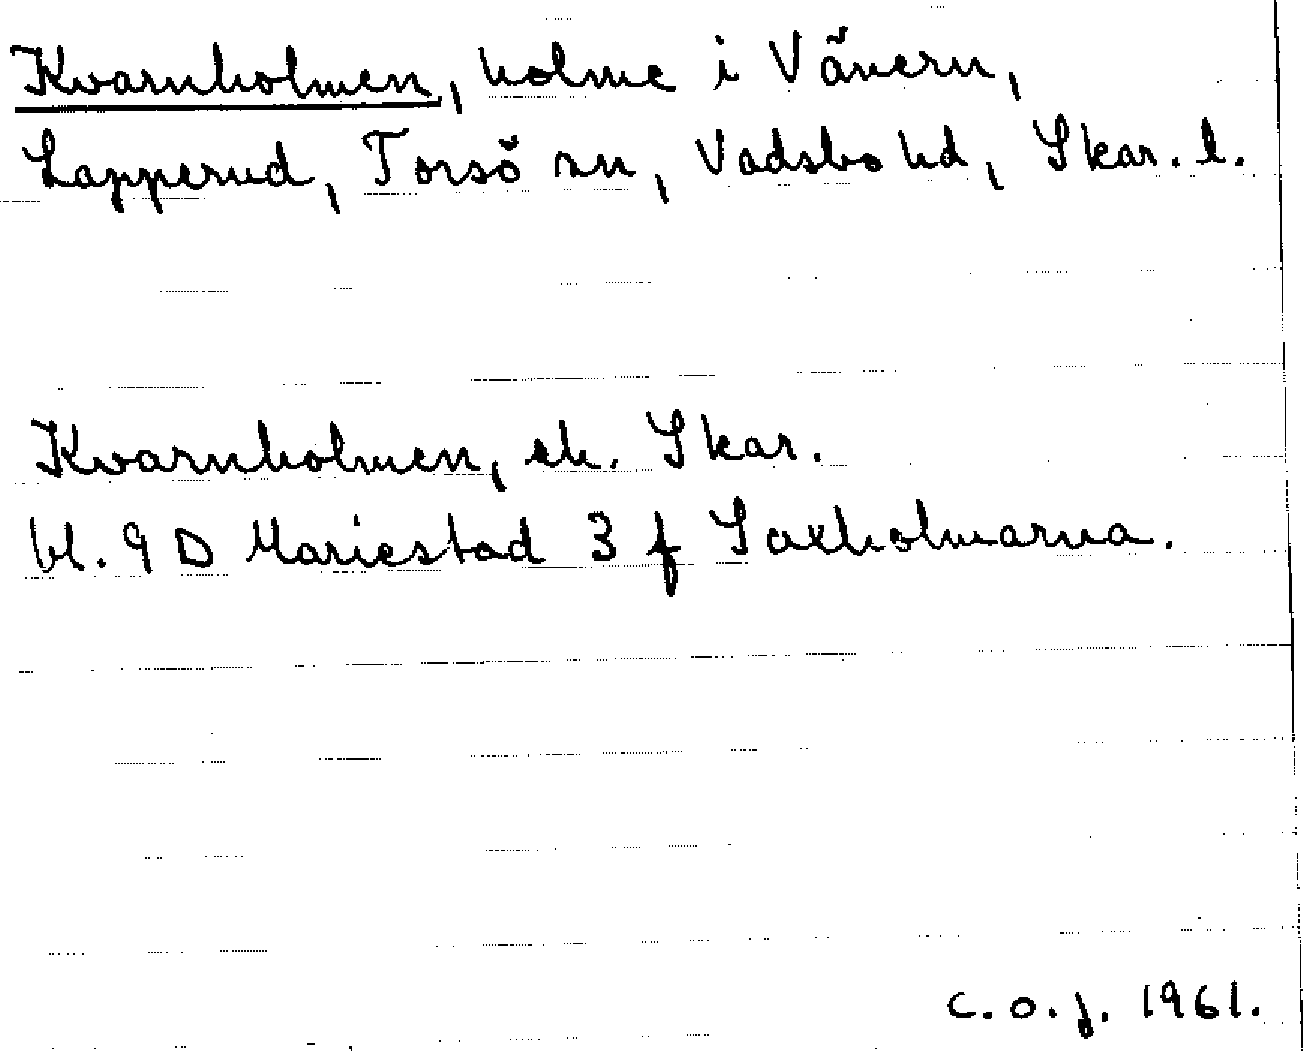 Kvarnholmen, holme i Vänern,
Lapperud, Torsö sn, Vadsbo hd, Skar. l.
Kvarnholmen, ek. Skar.
bl. 9 D Mariestad 3 f Saxholmarna.
C. o. f. 1961.